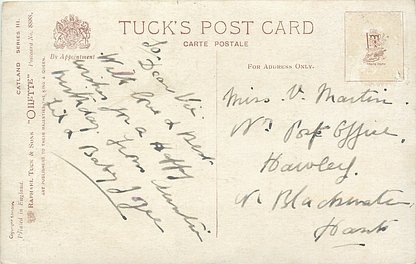 TUCK'S POST CARD
CARTE POSTALE
By Appointment
FOR ADDRESS ONLY.
CATLAND SERIES III.
"OILETTE"
RAPHAEL TUCK & SONS
ART PUBLISHERS TO THEIR MAJESTIES THE KING & QUEEN.
Copyright
Printed in England.
To Dear Vi
With love & best
wishes for a Happy
birthday from Auntie
& Baby Joyce
Miss. V. Martin.
Nr Post Office.
Hawley.
Nr Blackwater
Hants